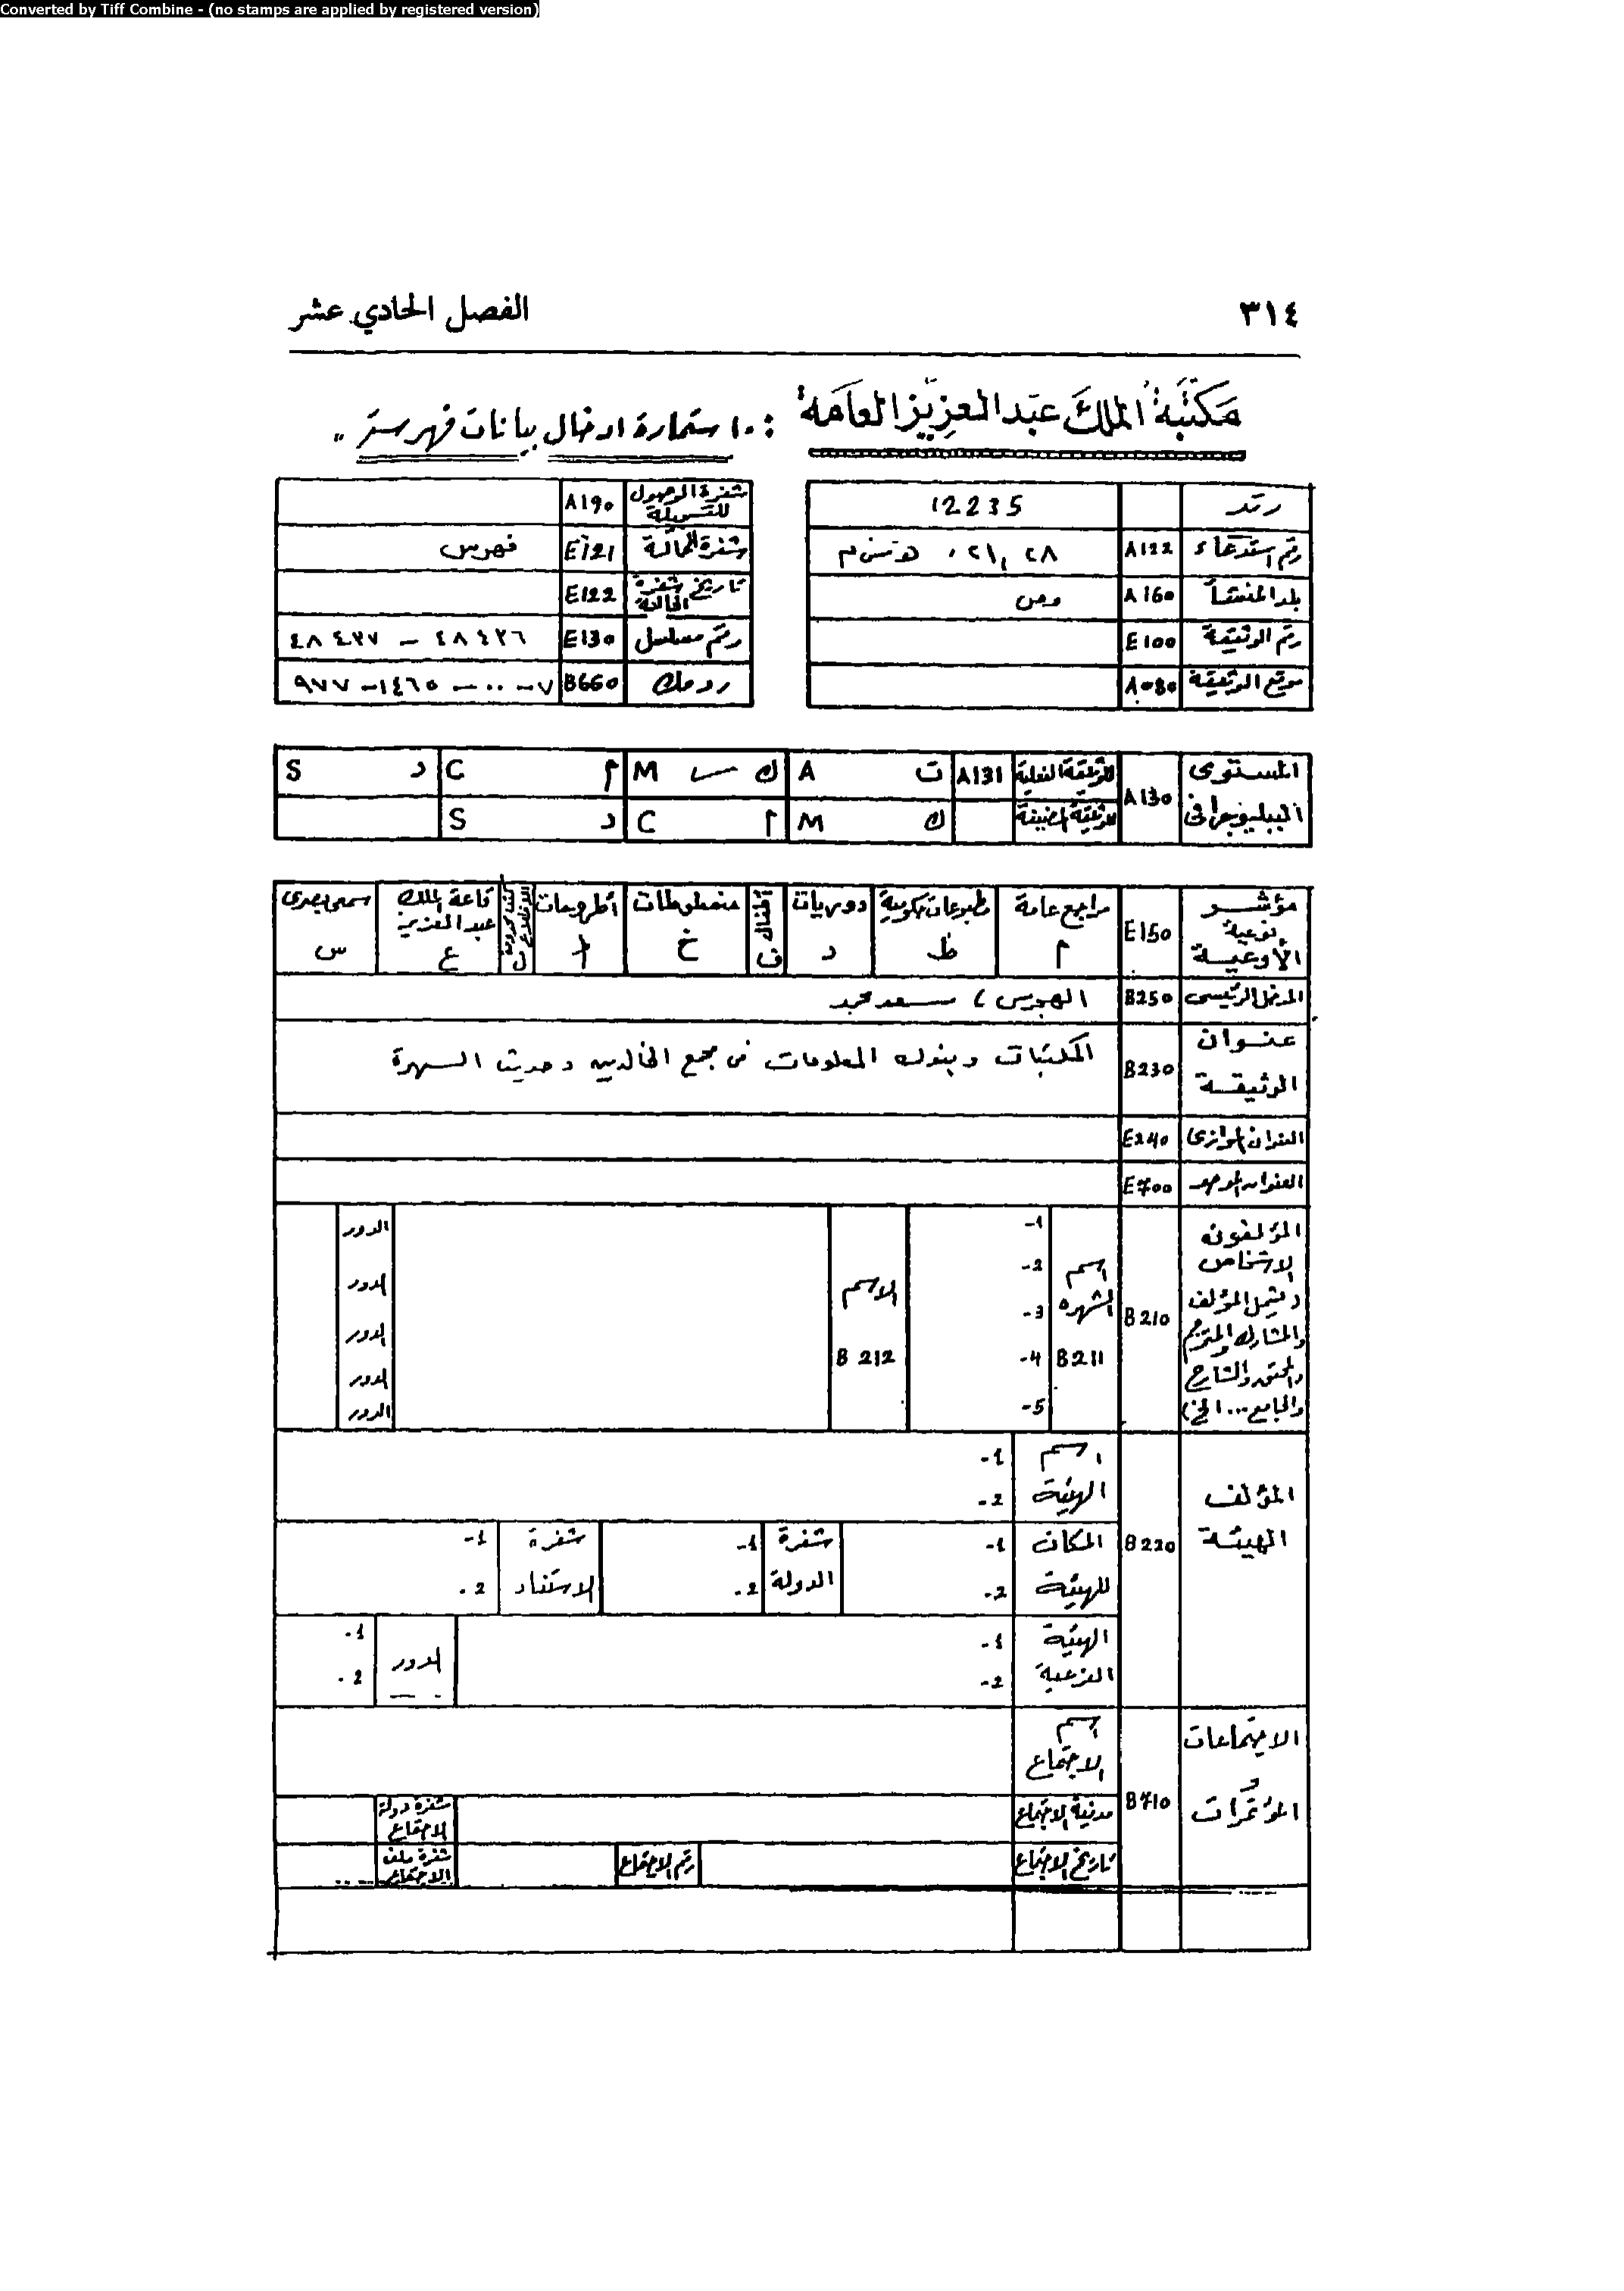 Converted by Tiff Combine - (no stamps are applied by registered version)
٣١٤ الفصل الحادي عشر
مكتبة الملك عبد العزيز العامة : "استمارة ادخال بيانات فهرسة"
رتد 12235
رقم استدعاء A122 ٠٢١,٢٨
بلد المنشأ A160
رقم الوثيقة E100
موقع الوثيقة A080
شفرة الوصول للتسجيلة A190
شفرة الحالة E121 فهرس
تاريخ شفرة الحالة E122
رقم مسلسل E130 ٤٨٤٢٦ – ٤٨٤٢٧
ردمك B660 ٩٧٧-١٤٦٥-٠٠-٧
المستوى الببليوجرافى A130
A131 ت A ك M م C د S
ك M م C د S
مؤشر نوعية الأوعية E150
مراجع عامة م
مطبوعات حكومية ط
دوريات د
أطفال ف
مخطوطات خ
أطروحات
قاعة الملك عبد العزيز ع
سمعى بصرى س
المدخل الرئيسى B250 الهجرسى، سعد محمد
عنوان الوثيقة B230 المكتبات وبنوك المعلومات فى مجمع الخالدين وحديث السهرة
العنوان الموازى E240
العنوان الموحد E700
المؤلفون الاشخاص
(يشمل المؤلف
والمشارك والمترجم
والمحقق والشارح
والجامع ... الخ)
B210
اسم الشهره B211
1-
2-
3-
4-
5-
الاسم B212
الدور
الدور
الدور
الدور
الدور
المؤلف الهيئة B220
اسم الهيئة 1- 2-
المكان للهيئة 1- 2-
شفرة الدولة 1- 2-
شفرة الاستناد 1- 2-
الهيئة الفرعية 1- 2-
الدور 1- 2-
الاجتماعات و المؤتمرات B710
اسم الاجتماع
مدنية الاجتماع
شفرة دولة الاجتماع
تاريخ الاجتماع
رقم الاجتماع
شفرة ملف الاجتماع